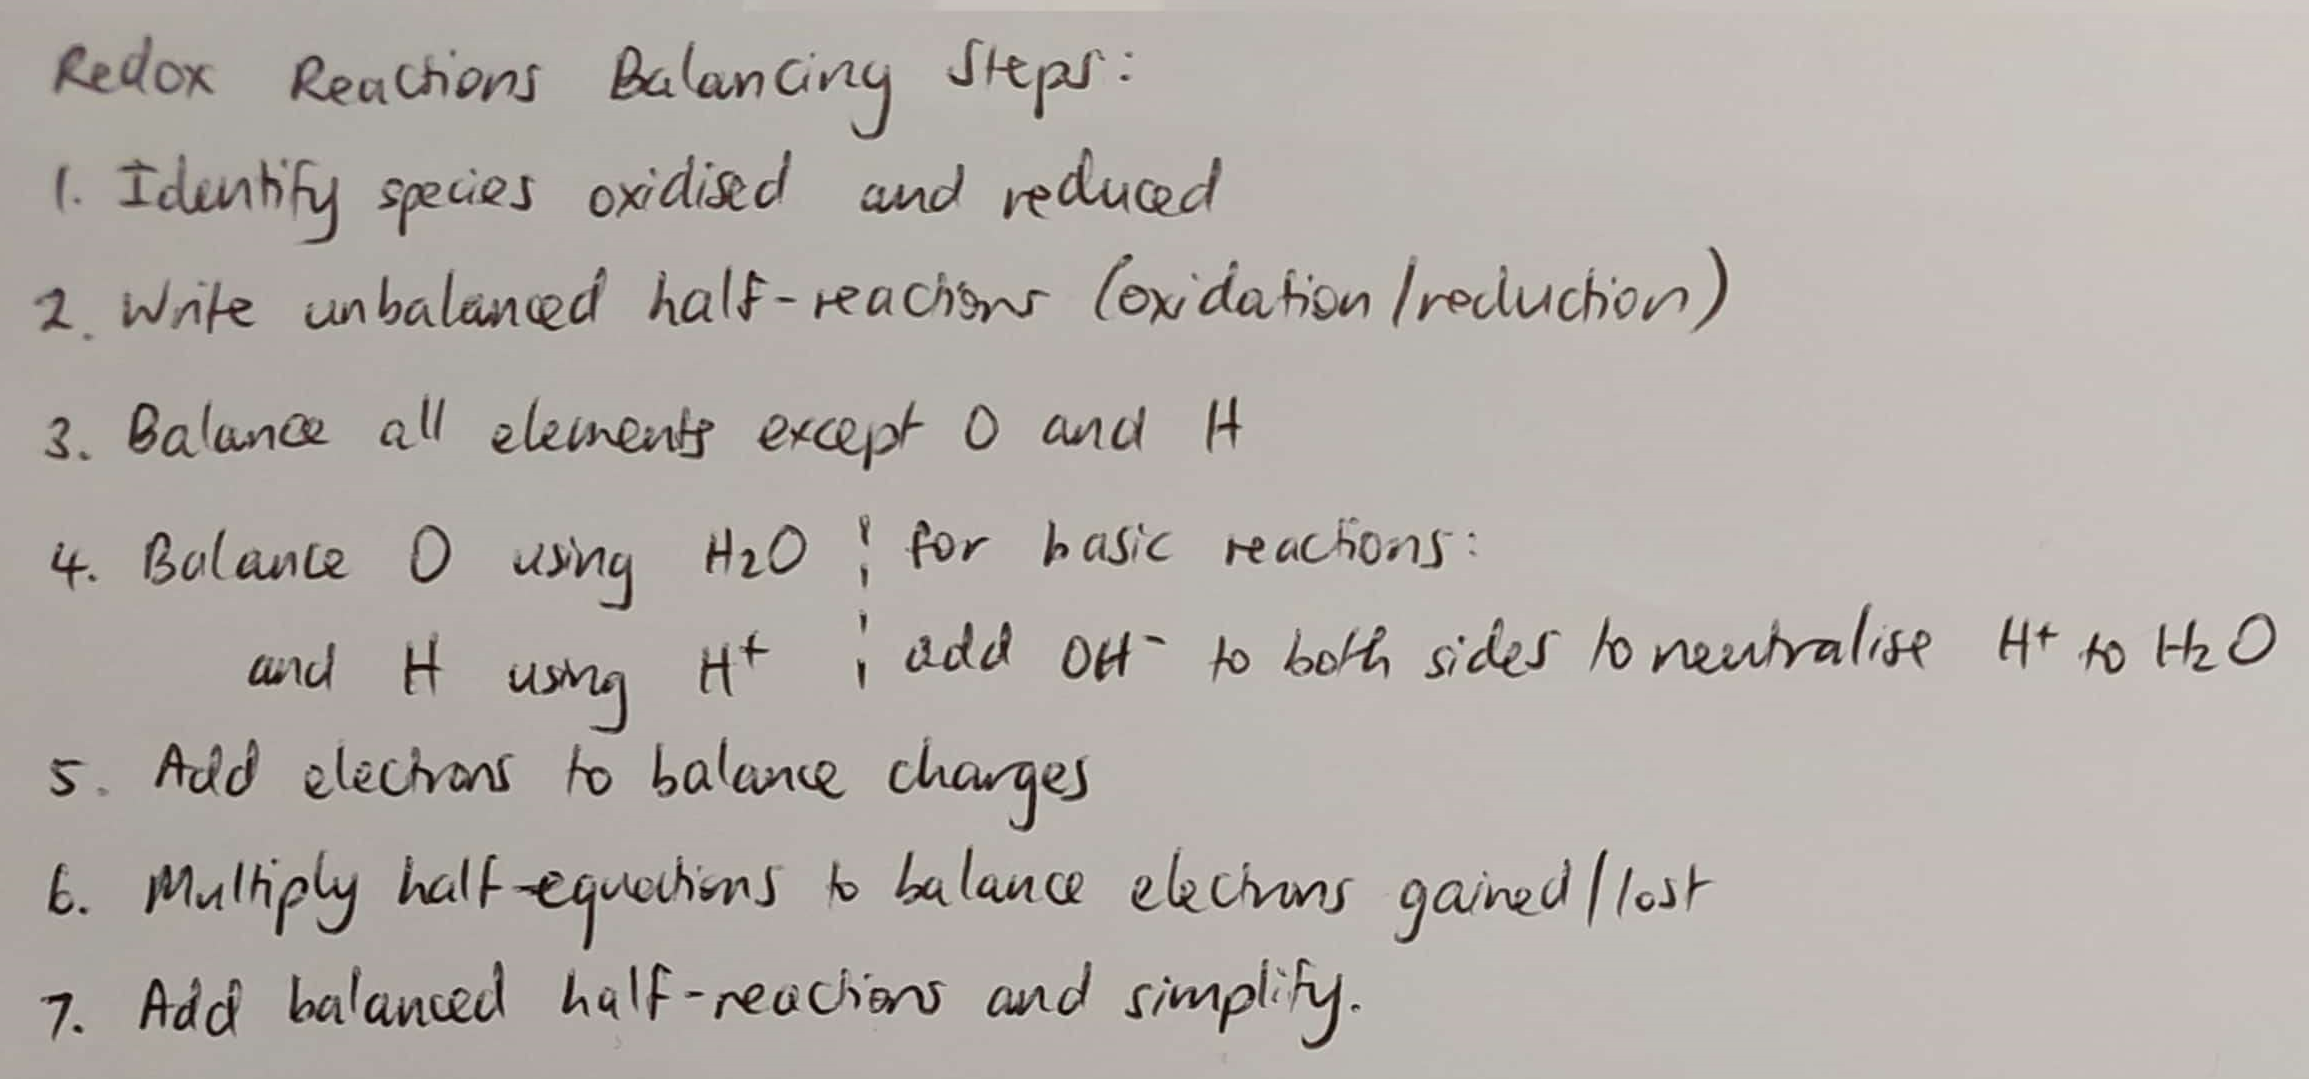 Redox Reactions Balancing Steps:
1. Identify species oxidised and reduced
2. Write unbalanced half-reactions (oxidation/reduction)
3. Balance all elements except O and H
4. Balance O using H2O ¦ for basic reactions:
and H using H+ ¦ add OH- to both sides to neutralise H+ to H2O
5. Add electrons to balance charges
6. Multiply half-equations to balance electrons gained/lost
7. Add balanced half-reactions and simplify.